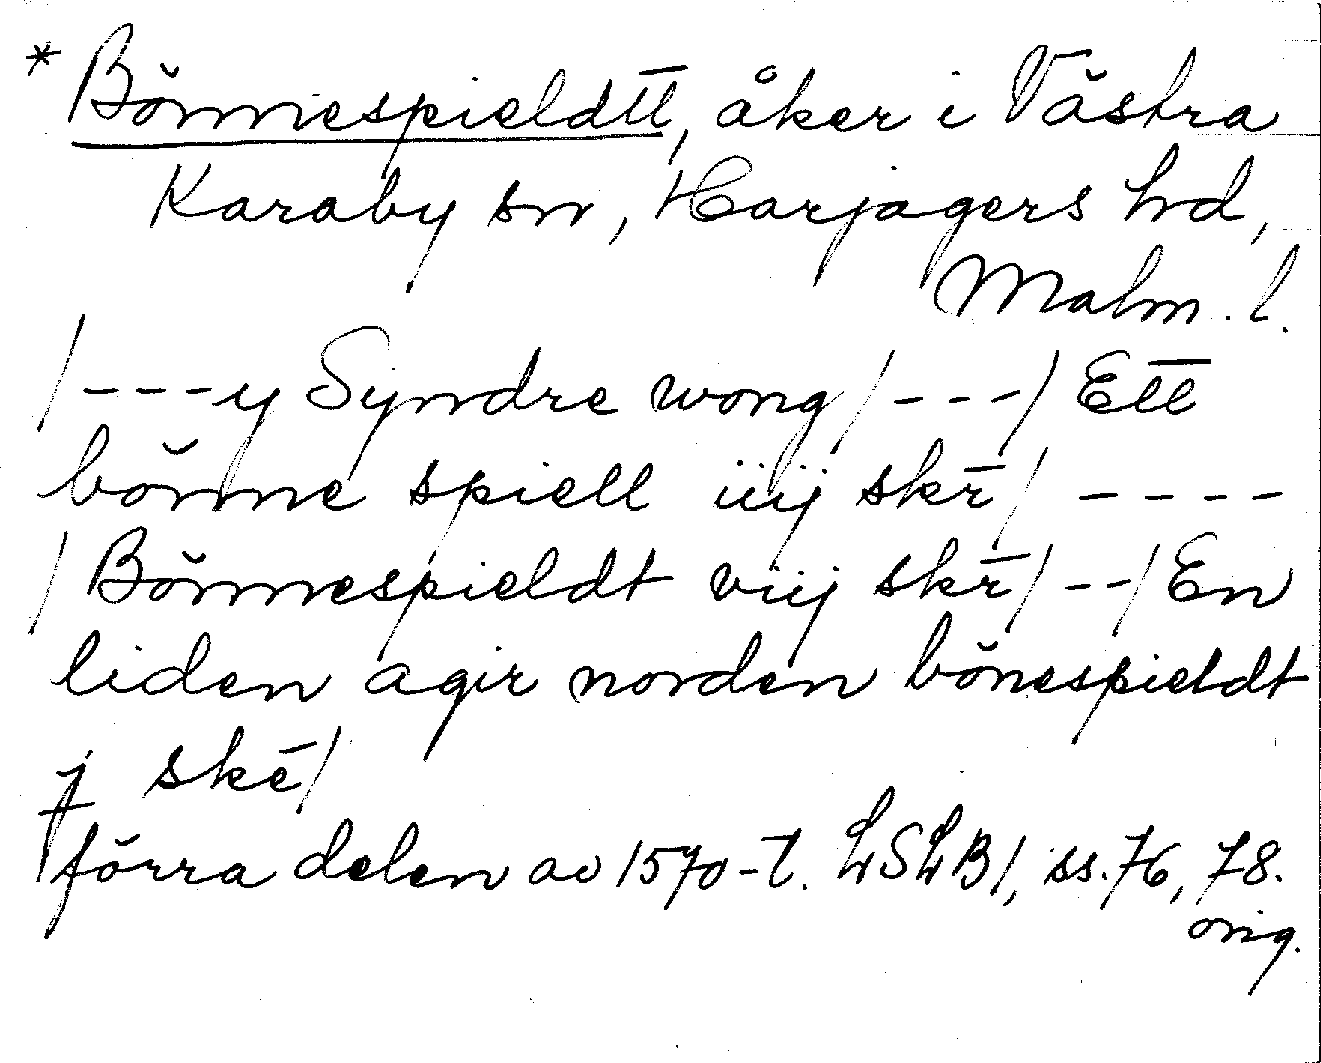 * Bönnespieldtt, åker i Västra
Karaby sn, Harjagers hd,
Malm. l.
/---y Syndre wong/---/ Ett
bönne spiell iiij skr̄/ ----
/ Bönnespieldt viij skr̄/--/ En
liden agir norden bönespieldt
j skē/
förra delen av 1570-t. LSLB1, ss. 76, 78.
orig.